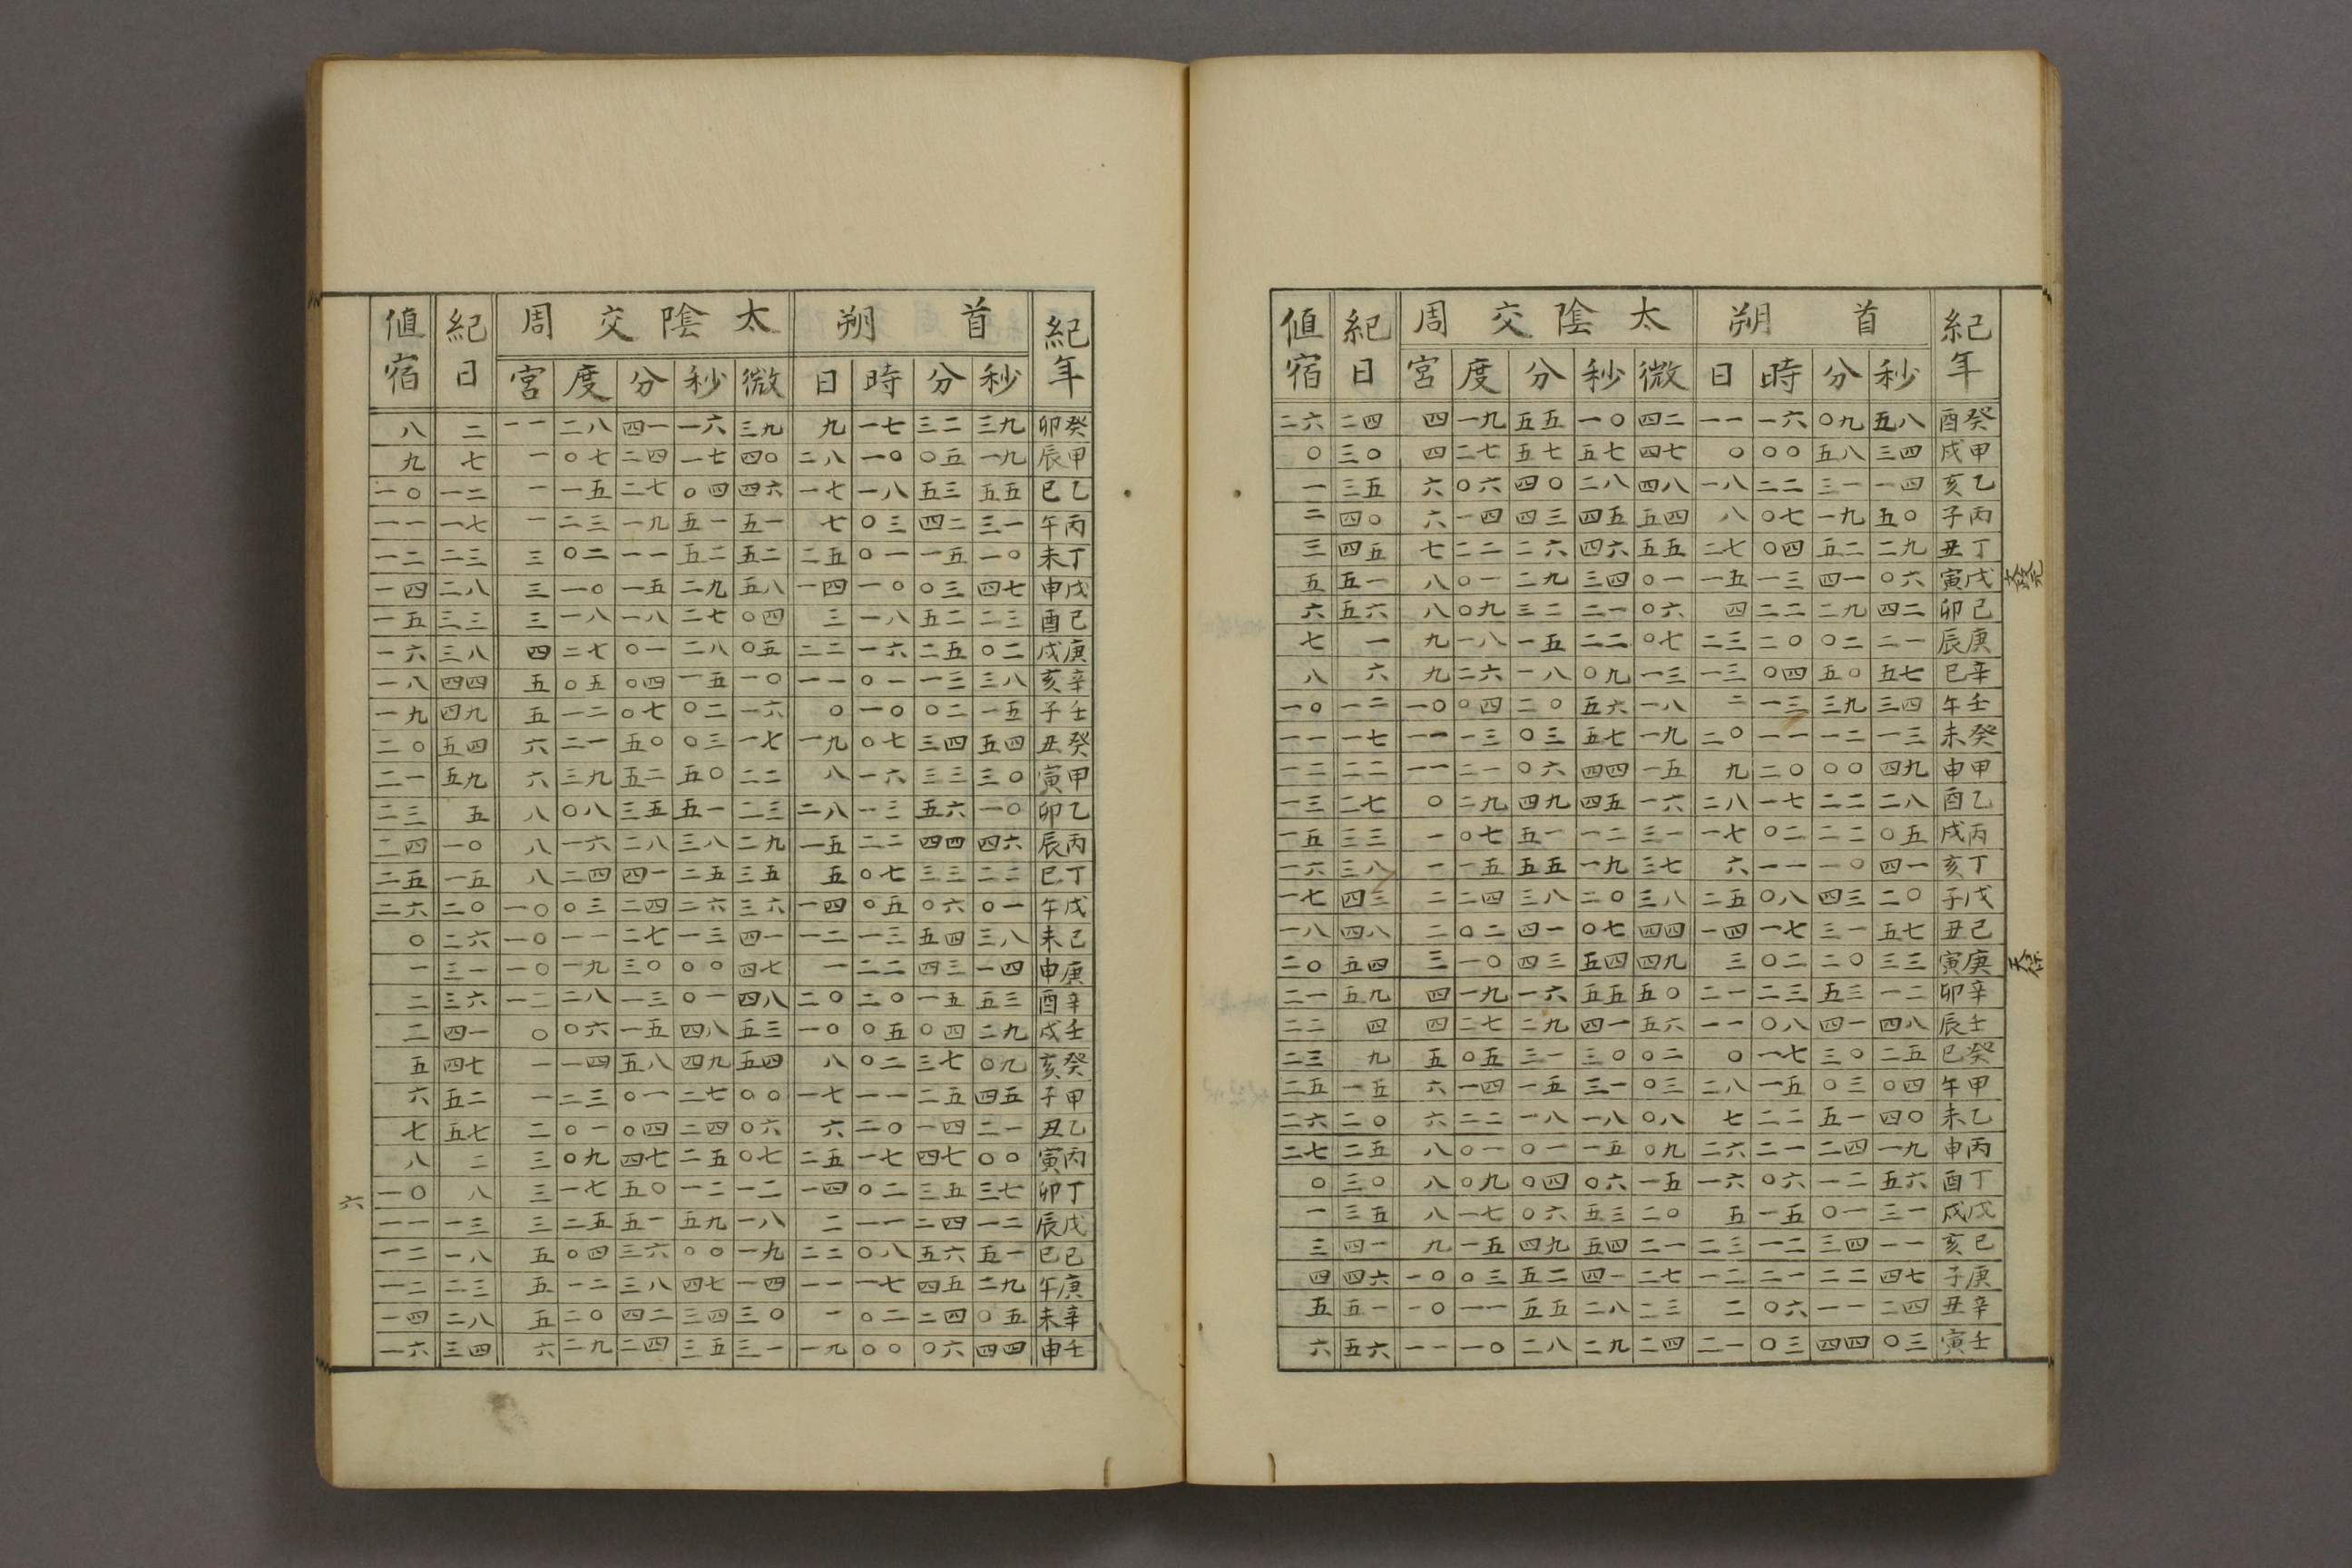 值宿 紀日 太陰交周 首朔 紀年
宮 度 分 秒 微 日 時 分 秒
二六 二四 四 一九 五五 一〇 四二 一一 一六 〇九 五八 癸酉
〇 三〇 四 二七 五七 五七 四七 〇 〇〇 五八 三四 甲戌
一 三五 六 〇六 四〇 二八 四八 一八 二二 三一 一四 乙亥
二 四〇 六 一四 四三 四五 五四 八 〇七 一九 五〇 丙子
三 四五 七 二二 二六 四六 五五 二七 〇四 五二 二九 丁丑
五 五一 八 〇一 二九 三四 〇一 一五 一三 四一 〇六 戊寅 文政元
六 五六 八 〇九 三二 二一 〇六 四 二二 二九 四二 己卯
七 一 九 一八 一五 二二 〇七 二三 二〇 〇二 二一 庚辰
八 六 九 二六 一八 〇九 一三 一三 〇四 五〇 五七 辛巳
一〇 一二 一〇 〇四 二〇 五六 一八 二 一三 三九 三四 壬午
一一 一七 一一 一三 〇三 五七 一九 二〇 一一 一二 一三 癸未
一二 二二 一一 二一 〇六 四四 一五 九 二〇 〇〇 四九 甲申
一三 二七 〇 二九 四九 四五 一六 二八 一七 二二 二八 乙酉
一五 三三 一 〇七 五一 一二 三一 一七 〇二 二二 〇五 丙戌
一六 三八 一 一五 五五 一九 三七 六 一一 一〇 四一 丁亥
一七 四三 二 二四 三八 二〇 三八 二五 〇八 四三 二〇 戊子
一八 四八 二 〇二 四一 〇七 四四 一四 一七 三一 五七 己丑
二〇 五四 三 一〇 四三 五四 四九 三 〇二 二〇 三三 庚寅 天保
二一 五九 四 一九 一六 五五 五〇 二一 二三 五三 一二 辛卯
二二 四 四 二七 二九 四一 五六 一一 〇八 四一 四八 壬辰
二三 九 五 〇五 三一 三〇 〇二 〇 一七 三〇 二五 癸巳
二五 一五 六 一四 一五 三一 〇三 二八 一五 〇三 〇四 甲午
二六 二〇 六 二二 一八 一八 〇八 七 二二 五一 四〇 乙未
二七 二五 八 〇一 〇一 一五 〇九 二六 二一 二四 一九 丙申
〇 三〇 八 〇九 〇四 〇六 一五 一六 〇六 一二 五六 丁酉
一 三五 八 一七 〇六 五三 二〇 五 一五 〇一 三一 戊戌
三 四一 九 一五 四九 五四 二一 二三 一二 三四 一一 己亥
四 四六 一〇 〇三 五二 四一 二七 一二 二一 二二 四七 庚子
五 五一 一〇 一一 五五 二八 二三 二 〇六 一一 二四 辛丑
六 五六 一一 一〇 二八 二九 二四 二一 〇三 四四 〇三 壬寅
值宿 紀日 太陰交周 首朔 紀年
宮 度 分 秒 微 日 時 分 秒
八 二 一一 二八 四一 一六 三九 九 一七 三二 三九 癸卯
九 七 一 〇七 二四 一七 四〇 二八 一〇 〇五 一九 甲辰
一〇 一二 一 一五 二七 〇四 四六 一七 一八 五三 五五 乙巳
一一 一七 一 二三 一九 五一 五一 七 〇三 四二 三一 丙午
一二 二三 三 〇二 一一 五二 五二 二五 〇一 一五 一〇 丁未
一四 二八 三 一〇 一五 二九 五八 一四 一〇 〇三 四七 戊申
一五 三三 三 一八 一八 二七 〇四 三 一八 五二 二三 己酉
一六 三八 四 二七 〇一 二八 〇五 二二 一六 二五 〇二 庚戌
一八 四四 五 〇五 〇四 一五 一〇 一一 〇一 一三 三八 辛亥
一九 四九 五 一二 〇七 〇二 一六 〇 一〇 〇二 一五 壬子
二〇 五四 六 二一 五〇 〇三 一七 一九 〇七 三四 五四 癸丑
二一 五九 六 三九 五二 五〇 二二 八 一六 三三 三〇 甲寅
二三 五 八 〇八 三五 五一 二三 二八 一三 五六 一〇 乙卯
二四 一〇 八 一六 二八 三八 二九 一五 二二 四四 四六 丙辰
二五 一五 八 二四 四一 二五 三五 五 〇七 三三 二二 丁巳
二六 二〇 一〇 〇三 二四 二六 三六 一四 〇五 〇六 〇一 戊午
〇 二六 一〇 一一 二七 一三 四一 一二 一三 五四 三八 己未
一 三一 一〇 一九 三〇 〇〇 四七 一 二二 四三 一四 庚申
二 三六 一二 二八 一三 〇一 四八 二〇 二〇 一五 五三 辛酉
二 四一 〇 〇六 一五 四八 五三 一〇 〇五 〇四 二九 壬戌
五 四七 一 一四 五八 四九 五四 八 〇二 三七 〇九 癸亥
六 五二 一 二三 〇一 二七 〇〇 一七 一一 二五 四五 甲子
七 五七 二 〇一 〇四 二四 〇六 六 二〇 一四 二一 乙丑
八 二 三 〇九 四七 二五 〇七 二五 一七 四七 〇〇 丙寅
一〇 八 三 一七 五〇 一二 一二 一四 〇二 三五 三七 丁卯
一一 一三 三 二五 五一 五九 一八 二 一一 二四 一二 戊辰
一二 一八 五 〇四 三六 〇〇 一九 二二 〇八 五六 五一 己巳
一二 二三 五 一二 三八 四七 一四 一一 一七 四五 二九 庚午
一四 二八 五 二〇 四二 三四 三〇 一 〇二 二四 〇五 辛未
一六 三四 六 二九 二四 三五 三一 一九 〇〇 〇六 四四 壬申
六